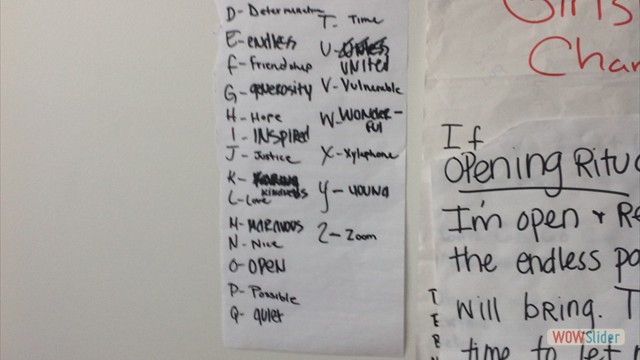 D- Determination
E- endless
F- Friendship
G- generosity
H- Hope
I- INSPIRED
J- Justice
K-
KINDNESS
L- Love
M-
N- Nice
O- OPEN
P- Possible
Q- quiet
T- Time
U-
UNITED
V- Vulnerable
W- WONDER-
FUL
X- Xylophone
Y- YOUNG
Z- Zoom
Girls
Char
If
OPENING RITU
I'm open + Re
the endless po
will bring. T
time to let
T
E
B
WOWSlider